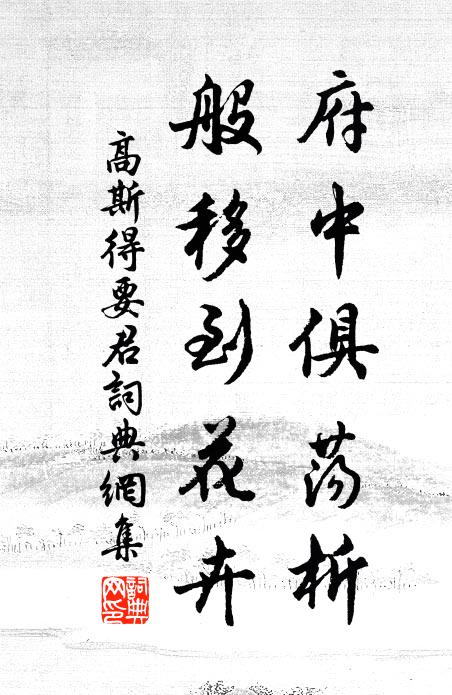 府中俱荡析
般移到花卉
高斯得要君詞典網集
詞典
网印